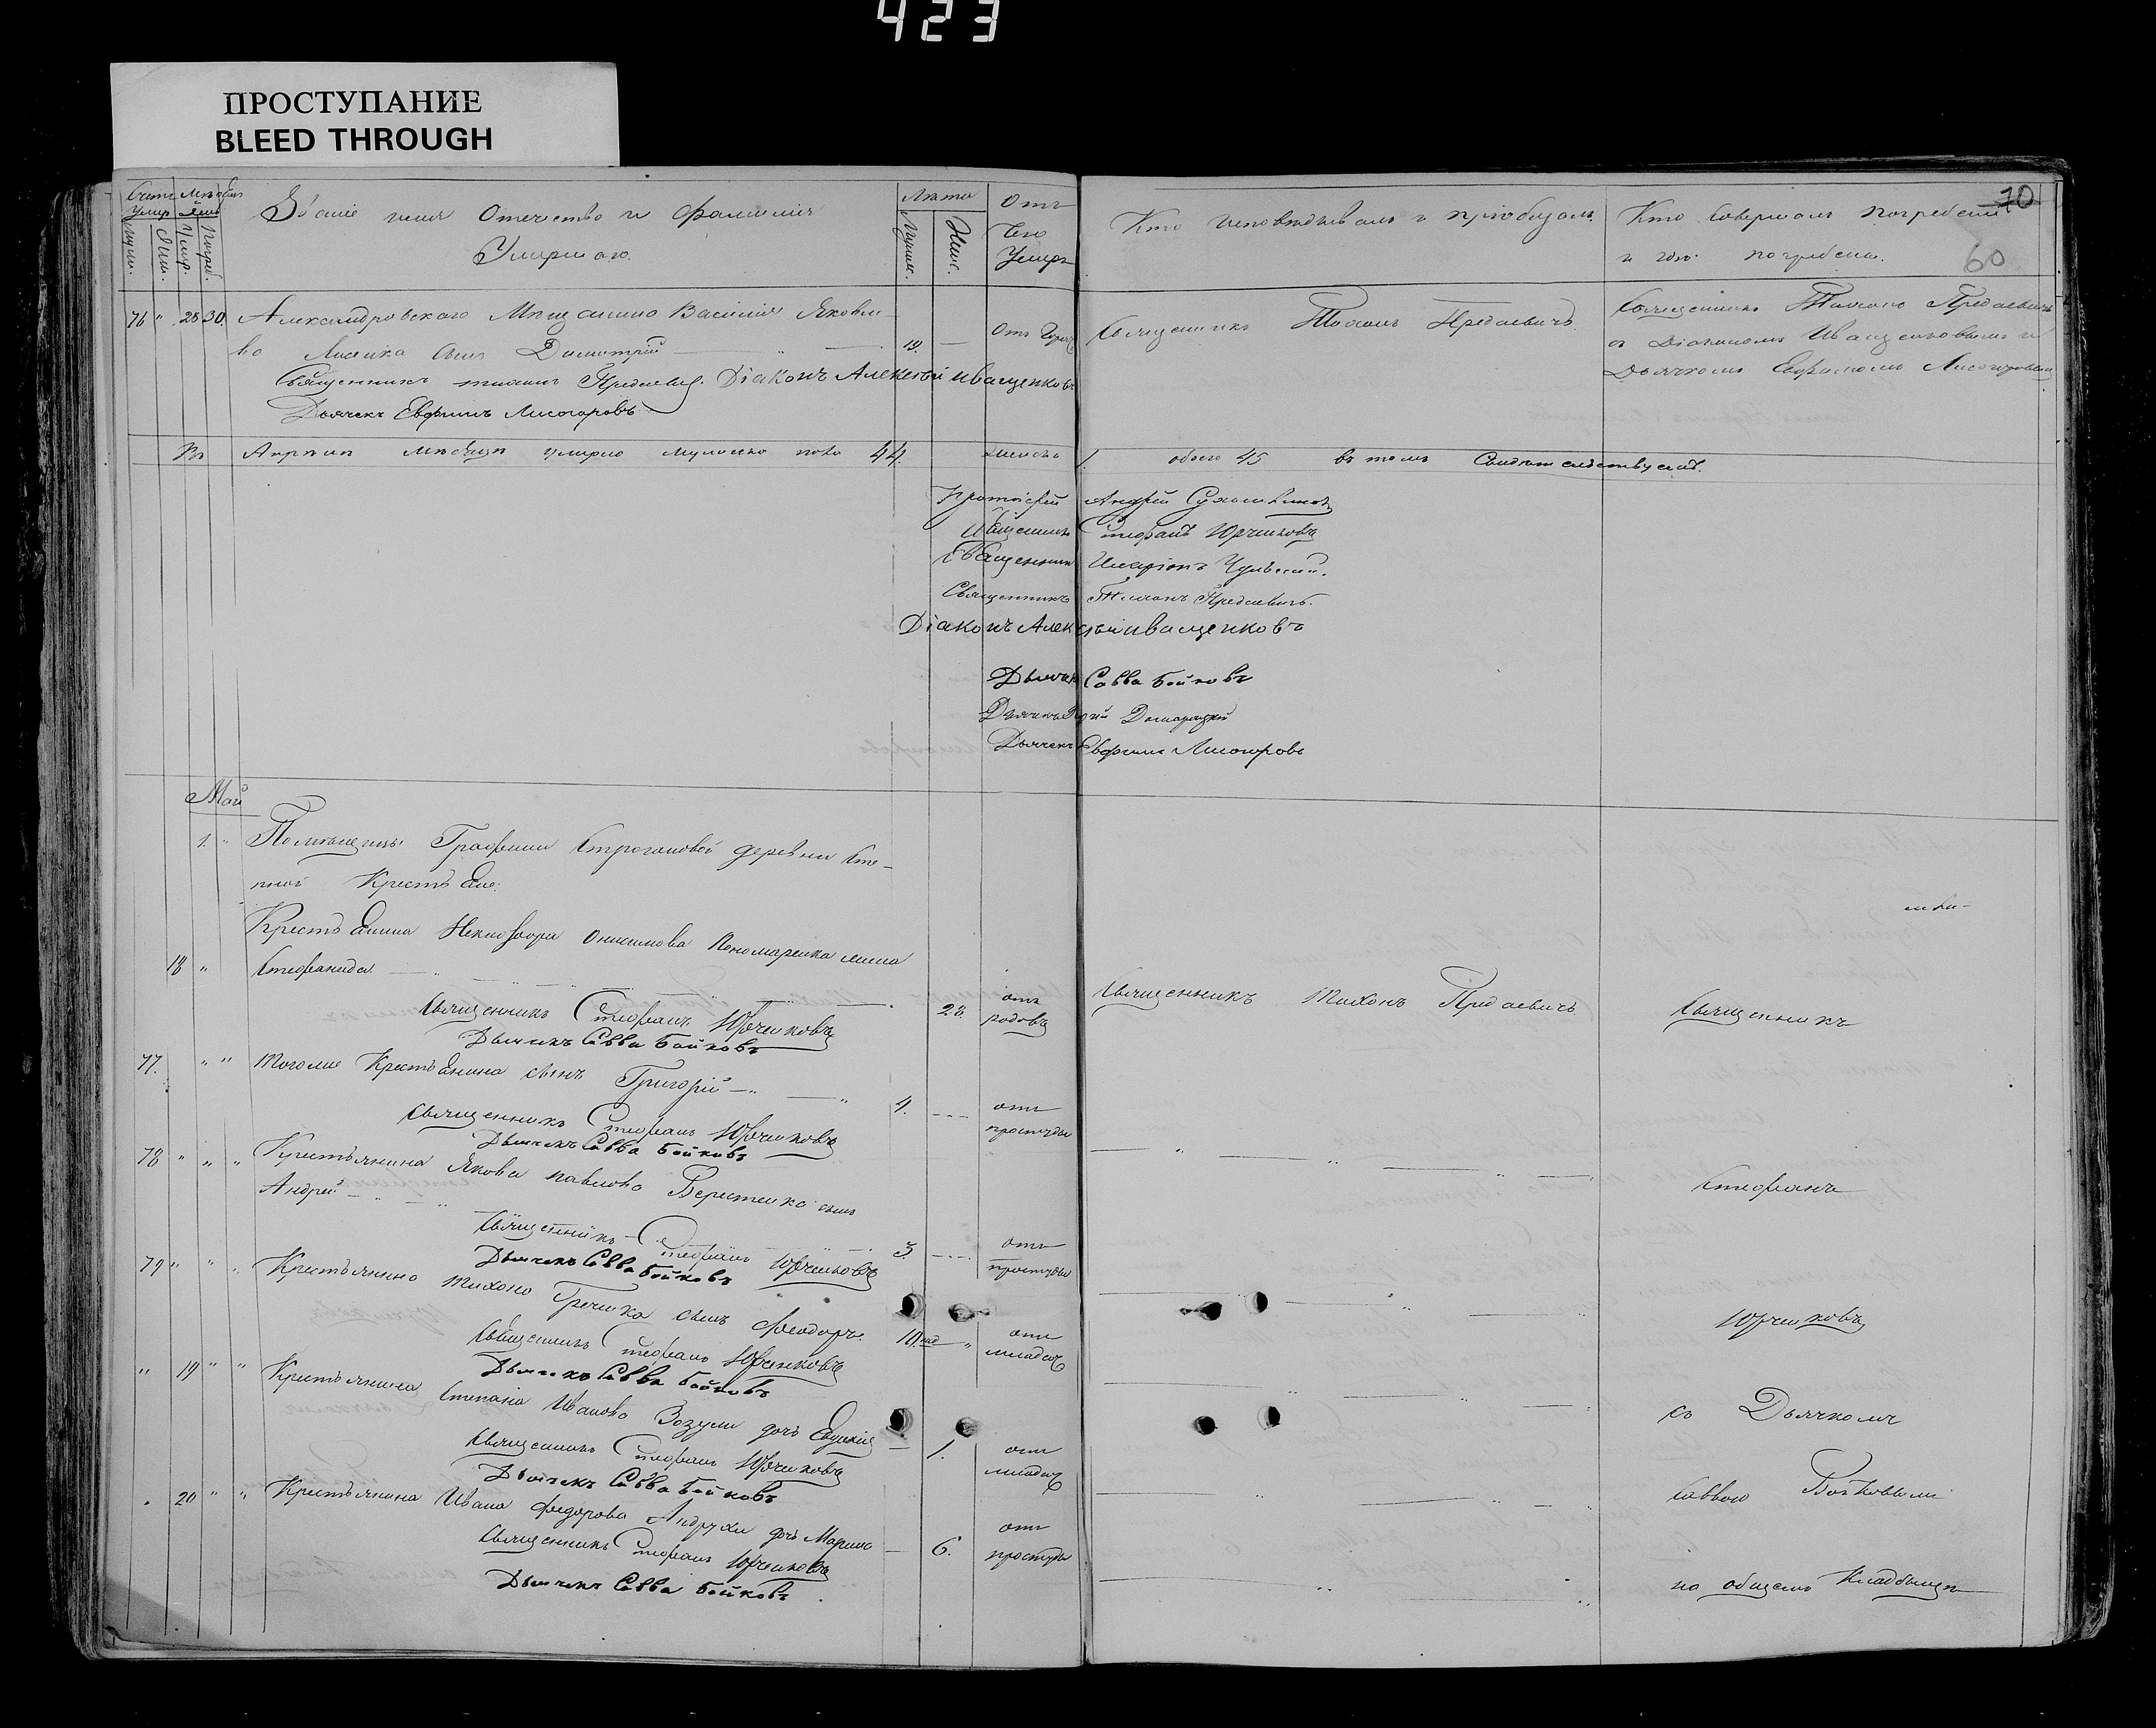 423
ПРОСТУПАНИЕ
BLEED THROUGH
70
60
Званіе имя Отечество и фамилія
Умершаго.
Лѣта
Отъ
чего
Умеръ
Кто исповѣдывалъ и пріобщалъ
Кто совершалъ погребеніе
и гдѣ погребены.
76 " 28 30 Александровскаго Мѣщанина Василія Яковле
ва сынъ Димитрій 19. — Отъ
Священникъ Тихонъ Предаевичъ
Священникъ Тихонъ Предаевичъ
съ Діакономъ Иващенковымъ и
Дьячкомъ Евфимомъ Лисогоровым
Священникъ Тихонъ Предаевичъ Діаконъ Алексѣй Иващенковъ
Дьячекъ Евфимъ Лисогоровъ
Въ Апрѣлѣ мѣсяцѣ умерло мужеска пола 44. женска 1. обоего 45 въ томъ Свидѣтельствуемъ.
Протоіерей Андрей
Священникъ Стефанъ Юрченковъ
Священникъ Иларіонъ
Священникъ Тихонъ Предаевичъ.
Діаконъ Алексѣй Иващенковъ
Дьячекъ Савва Бойковъ
Дьячекъ
Дьячекъ Евфимъ Лисогоровъ
Май
1. " Помѣщицы Графини Строгановой деревни Сте-
пной Крестьяне:
Крестьянина Онисимова Пономаренка жена
18 " Стефанида 28. отъ родовъ
Священникъ Тихонъ Предаевичъ
Священникъ
Священникъ Стефанъ Юрченковъ
Дьячекъ Савва Бойковъ
77. " " Тогоже Крестьянина сынъ Григорій 4. отъ простуды
Священникъ Стефанъ Юрченковъ
Дьячекъ Савва Бойковъ
78 " " " Крестьянина Якова Павлова сынъ
Андрей 3. отъ простуды
Стефанъ
Священникъ Стефанъ Юрченковъ
Дьячекъ Савва Бойковъ
79 " " " Крестьянина Тихона Гречика сынъ Феодоръ. 10 нед " отъ младен
Юрченковъ
Священникъ Стефанъ Юрченковъ
Дьячекъ Савва Бойковъ
" 19 " " Крестьянина Степана Иванова Зозули дочь Евдокия — 1. отъ младен
съ Дьячкомъ
Священникъ Стефанъ Юрченковъ
Дьячекъ Савва Бойковъ
Саввою Бойковымъ
" 20 " " Крестьянина Ивана Федорова Андрухи дочь Марина — 6. отъ простуды
Священникъ Стефанъ Юрченковъ
Дьячекъ Савва Бойковъ
на общемъ Кладбищѣ